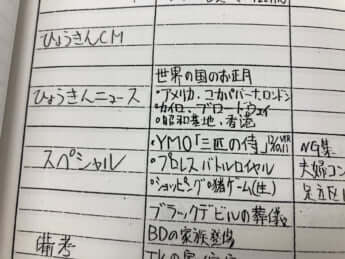 ひょうきんCM
世界の国のお正月
ひょうきんニュース
・アメリカ、コカパバーナ、ロンドン
・カイロ、ブロードウェイ
・昭和基地、香港
スペシャル
・YMO「三匹の侍」
NG集
・プロレスバトルロイヤル
夫婦コン
・ショッピング
ゲーム(生)
足立区
ブラックデビルの葬儀
備考
BDの家族登場